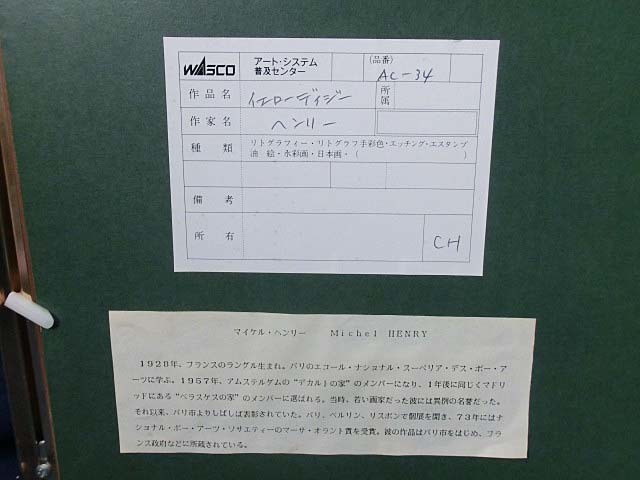 WASCO アート・システム 普及センター (品番) AC-34
作品名 イエローデイジー 所属
作家名 ヘンリー
種類 リトグラフィー・リトグラフ手彩色・エッチング・エスタンプ
油絵・水彩画・日本画・( )
備考
所有 CH
マイケル・ヘンリー Michel HENRY
1928年、フランスのラングル生まれ。パリのエコール・ナショナル・スーペリア・デス・ボー・ア
ーツに学ぶ。1957年、アムステルダムの“デカルトの家”のメンバーになり、1年後に同じくマドリ
ッドにある“ベラスケスの家”のメンバーに選ばれる。当時、若い画家だった彼には異例の名誉だった。
それ以来、パリ市よりしばしば表彰されていた。パリ、ベルリン、リスボンで個展を開き、73年にはナ
ショナル・ボー・アーツ・ソサエティーのマーサ・オラント賞を受賞。彼の作品はパリ市をはじめ、フラ
ンス政府などに所蔵されている。